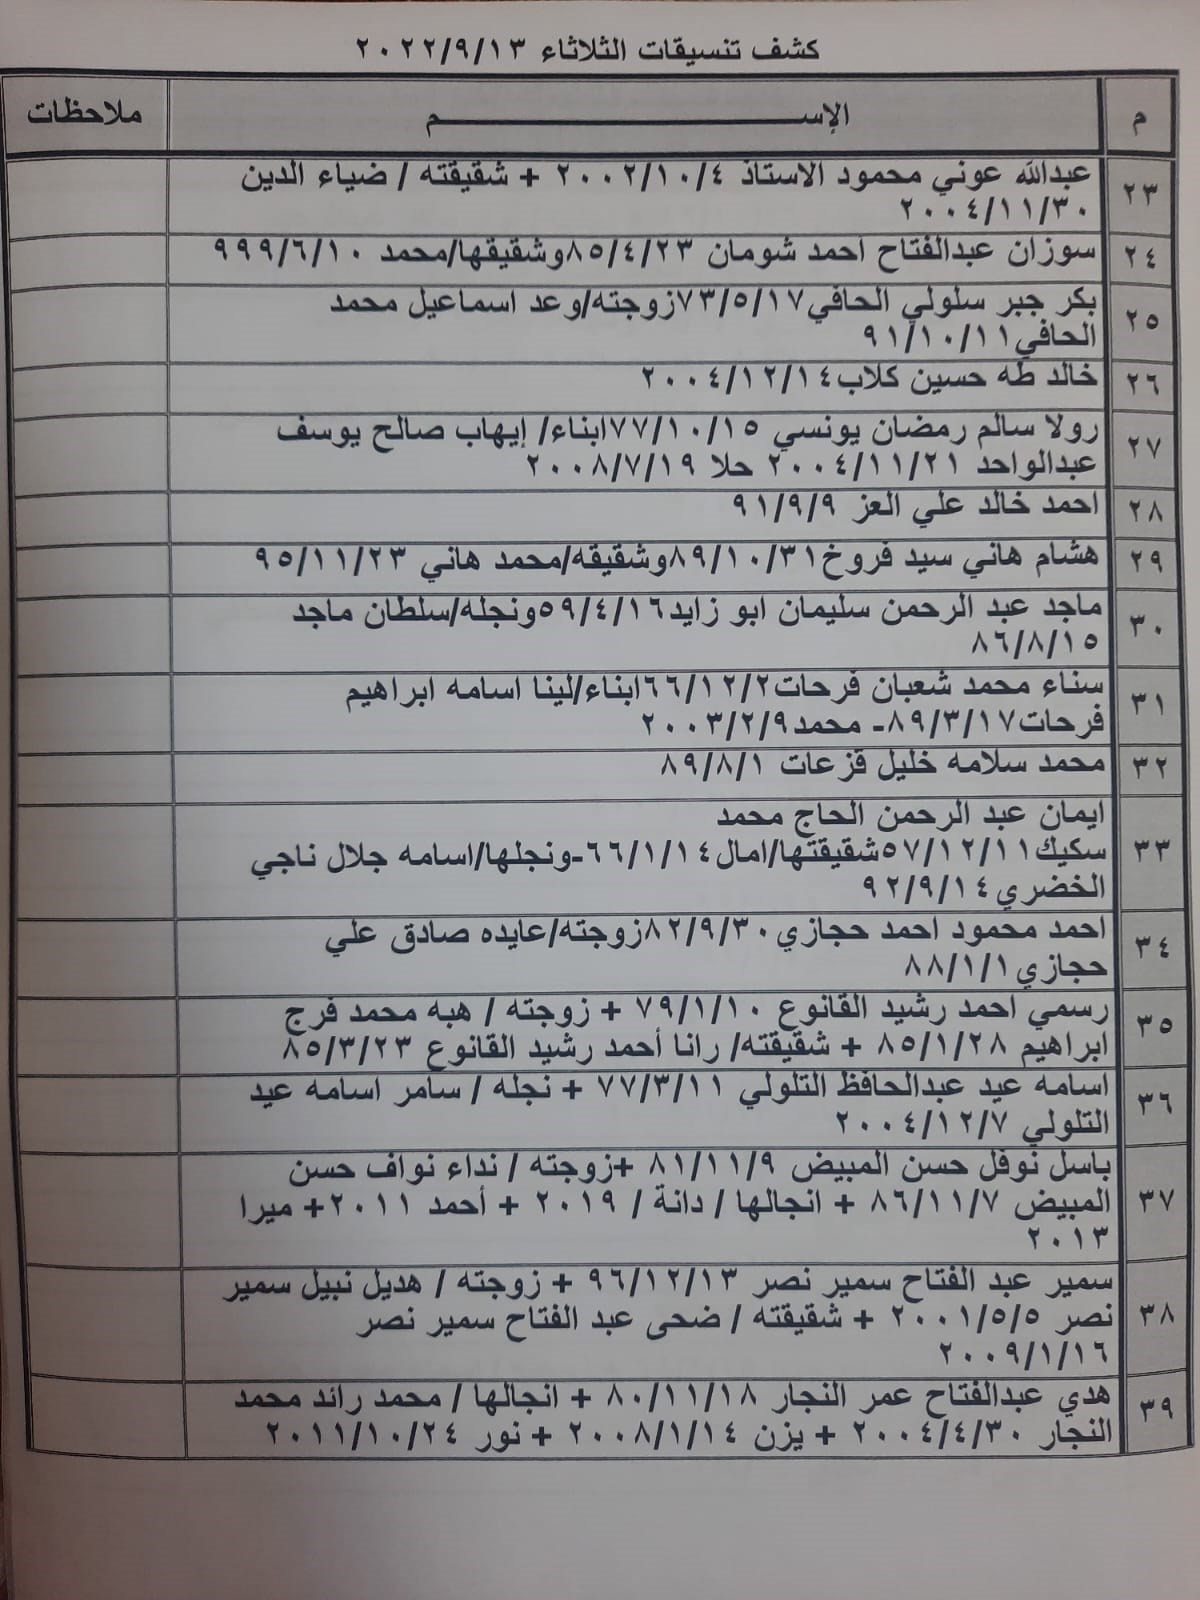 كشف تنسيقات الثلاثاء ٢٠٢٢/٩/١٣
م الإســـــــم ملاحظات
٢٣ عبدالله عوني محمود الاستاذ ٢٠٠٢/١٠/٤ + شقيقته / ضياء الدين
٢٠٠٤/١١/٣٠
٢٤ سوزان عبدالفتاح احمد شومان ٨٥/٤/٢٣وشقيقها/محمد ٩٩٩/٦/١٠
٢٥ بكر جبر سلولي الحافي٧٣/٥/١٧زوجته/وعد اسماعيل محمد
الحافي٩١/١٠/١١
٢٦ خالد طه حسين كلاب٢٠٠٤/١٢/١٤
٢٧ رولا سالم رمضان يونسي ٧٧/١٠/١٥ابناء/ إيهاب صالح يوسف
عبدالواحد ٢٠٠٤/١١/٢١ حلا ٢٠٠٨/٧/١٩
٢٨ احمد خالد علي العز ٩١/٩/٩
٢٩ هشام هاني سيد فروخ٨٩/١٠/٣١وشقيقه/محمد هاني ٩٥/١١/٢٣
٣٠ ماجد عبد الرحمن سليمان ابو زايد٥٩/٤/١٦ونجله/سلطان ماجد
٨٦/٨/١٥
٣١ سناء محمد شعبان فرحات٦٦/١٢/٢ابناء/لينا اسامه ابراهيم
فرحات٨٩/٣/١٧- محمد٢٠٠٣/٢/٩
٣٢ محمد سلامه خليل قزعات ٨٩/٨/١
٣٣ ايمان عبد الرحمن الحاج محمد
سكيك٥٧/١٢/١١شقيقتها/امال٦٦/١/١٤-ونجلها/اسامه جلال ناجي
الخضري٩٢/٩/١٤
٣٤ احمد محمود احمد حجازي٨٢/٩/٣٠زوجته/عايده صادق علي
حجازي٨٨/١/١
٣٥ رسمي احمد رشيد القانوع ٧٩/١/١٠ + زوجته / هبه محمد فرج
ابراهيم ٨٥/١/٢٨ + شقيقته/ رانا أحمد رشيد القانوع ٨٥/٣/٢٣
٣٦ اسامه عيد عبدالحافظ التلولي ٧٧/٣/١١ + نجله / سامر اسامه عيد
التلولي ٢٠٠٤/١٢/٧
٣٧ باسل نوفل حسن المبيض ٨١/١١/٩ +زوجته / نداء نواف حسن
المبيض ٨٦/١١/٧ + انجالها / دانة / ٢٠١٩ + أحمد ٢٠١١+ ميرا
٢٠١٣
٣٨ سمير عبد الفتاح سمير نصر ٩٦/١٢/١٣ + زوجته / هديل نبيل سمير
نصر ٢٠٠١/٥/٥ + شقيقته / ضحى عبد الفتاح سمير نصر
٢٠٠٩/١/١٦
٣٩ هدي عبدالفتاح عمر النجار ٨٠/١١/١٨ + انجالها / محمد رائد محمد
النجار ٢٠٠٤/٤/٣٠ + يزن ٢٠٠٨/١/١٤ + نور ٢٠١١/١٠/٢٤